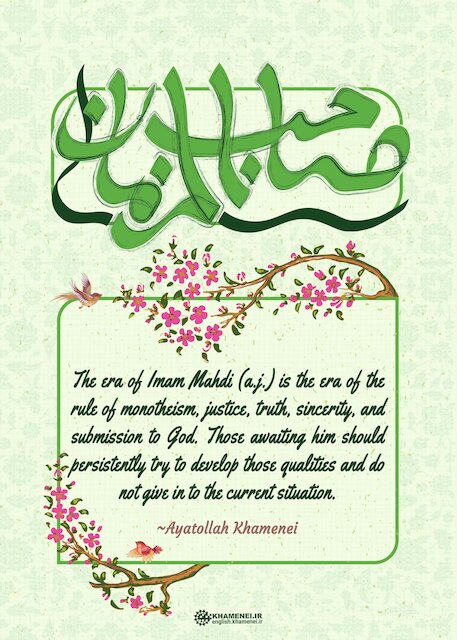 صاحب الزمان
The era of Imam Mahdi (a.j.) is the era of the
rule of monotheism, justice, truth, sincerity, and
submission to God. Those awaiting him should
persistently try to develop those qualities and do
not give in to the current situation.
~Ayatollah Khamenei
KHAMENEI.IR
english.khamenei.ir